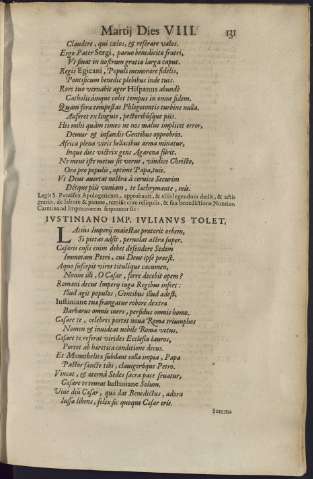 Martij Dies VIII. 131
Claudere, qui cœlos, & reserare vales.
Ergo Pater Sergi, paruo benedicito fratri,
Vi sonat in nostrum gratia larga caput.
Regis Egicani, Populi memorare fidelis,
Pontificum benedic plebibus inde tuis.
Rore tuo vernabit ager Hispanus abundè
Catholicæque colet tempus in omne fidem.
Quam fera tempestas Phlegetontis turbine nulla
Auferet ex linguis, pectoribúsque pijs.
Hos mihi quàm timeo ne nos malus implicet error,
Demur & infandis Gentibus opprobrio.
Africa plena viris bellacibus arma minatur,
Inque dies victrix gens Agarena furit.
Ne meus iste metus sit verus, vindice Christo,
Ora pro populis, optime Papa, tuis.
Vt Deus auertat nostra à ceruice Securim
Décque pijs veniam, te lachrymante, reis.
Legit S. Pontifex Apologeticum, approbauit, & alijs legendum dedit, & actis
gratijs, de labore & pietate, remisit cum reliquijs, & sua benedictione Nuntios.
Carmina ad Imperatorem sequuntur sic:
IVSTINIANO IMP. IVLIANVS TOLET.
Latius Imperij maiestas proterit orbem,
Si pietas adsit, peruolat astra super.
Cæsaris ensis enim debet defendere Sedem
Immotam Petri, cui Deus ipse præest.
Aquo suscepit vires titulique cacumen,
Nonne illi, O Cæsar, ferre decebit opem?
Romani decus Imperij iuga Regibus infert:
Illud agit populos, Gentibus illud adest.
Iustiniane tua frangatur robore dextra
Barbarus omnis iners, perfidus omnis homo.
Cæsare te, celebres portet noua Roma triumphos
Nomen & inuideat nobile Roma vetus.
Cæsare te referat virides Ecclesia lauros,
Portet ab hæretica conditione decus.
Et Monothelita subdant colla impia, Papa
Pastor sancte tibi, clauigeróque Petro.
Vincat, & æternâ Sedes sacra pace fruatur,
Cæsare te remeat Iustiniane Solum.
Viue diù Cæsar, qua dat Benedictus, adora
Iussa libens, felix sic quoque Cæsar eris.